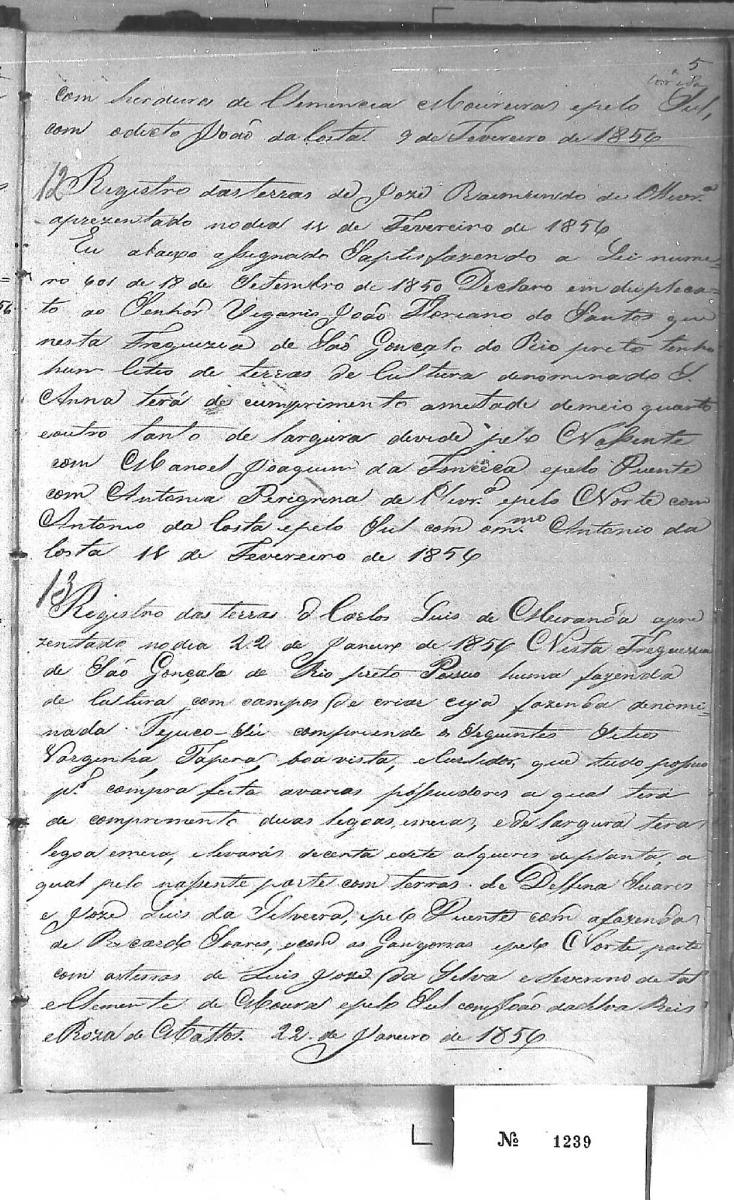 5
com herdeiros de Clemencia Moureiras epelo Sul,
com odicto João da Costa. 9 de Fevereiro de 1856
12 Registro das terras de Joze Raimundo de Olivr.ª
aprezentado nodia 14 de Fevereiro de 1856
Eu abaxo assignado Saptisfazendo a Lei nume-
ro 601 de 18 de Setembro de 1850 Declaro em duplica-
to ao Senhor Vigario João Floriano do Santos que
nesta Freguezia de São Gonçalo do Rio preto tenho
hum Citio de terras de Cultura denominado S.
Anna terá de cumprimento ametade demeio quarto
eoutro tanto de largura devide pelo Nassente
com Manoel Joaquim da Fonceca epelo Puente
com Antonia Peregrina de Olivr.ª epelo Norte com
Antonio da Costa epelo Sul com omº Antonio da
Costa 14 de Fevereiro de 1856
13
Registro das terras d Carlos Luis de Meranda apre
zentado nodia 22 de Janeiro de 1856 Nesta Freguezia
de São Gonçalo do Rio preto Possuo huma fazenda
de Cultura com campos de criar cuja fazenda denomi-
nada Tejuco compreende os Seguintes Sitios
Varginha, Tapera, boa vista, e que tudo possuo
p.r compra feita avarios possuidores a qual terá
de comprimento duas legoas, emeia, ede largura terá
legoa emeia, elevará decenta esete alqueres deplanta, a
qual pelo nassente parte com terras de Delfina Suares
e Joze Luis da Silveira, epelo Puente com afazenda
de Ricardo Soares, ecom as Gangorras epelo Norte parte
com asterras de Luis Joze da Silva e Severino de tal
e Clemente de Moura epelo Sul com João da Silva Reis
e Roza de Mattos. 22 de Janeiro de 1856
Nº 1239